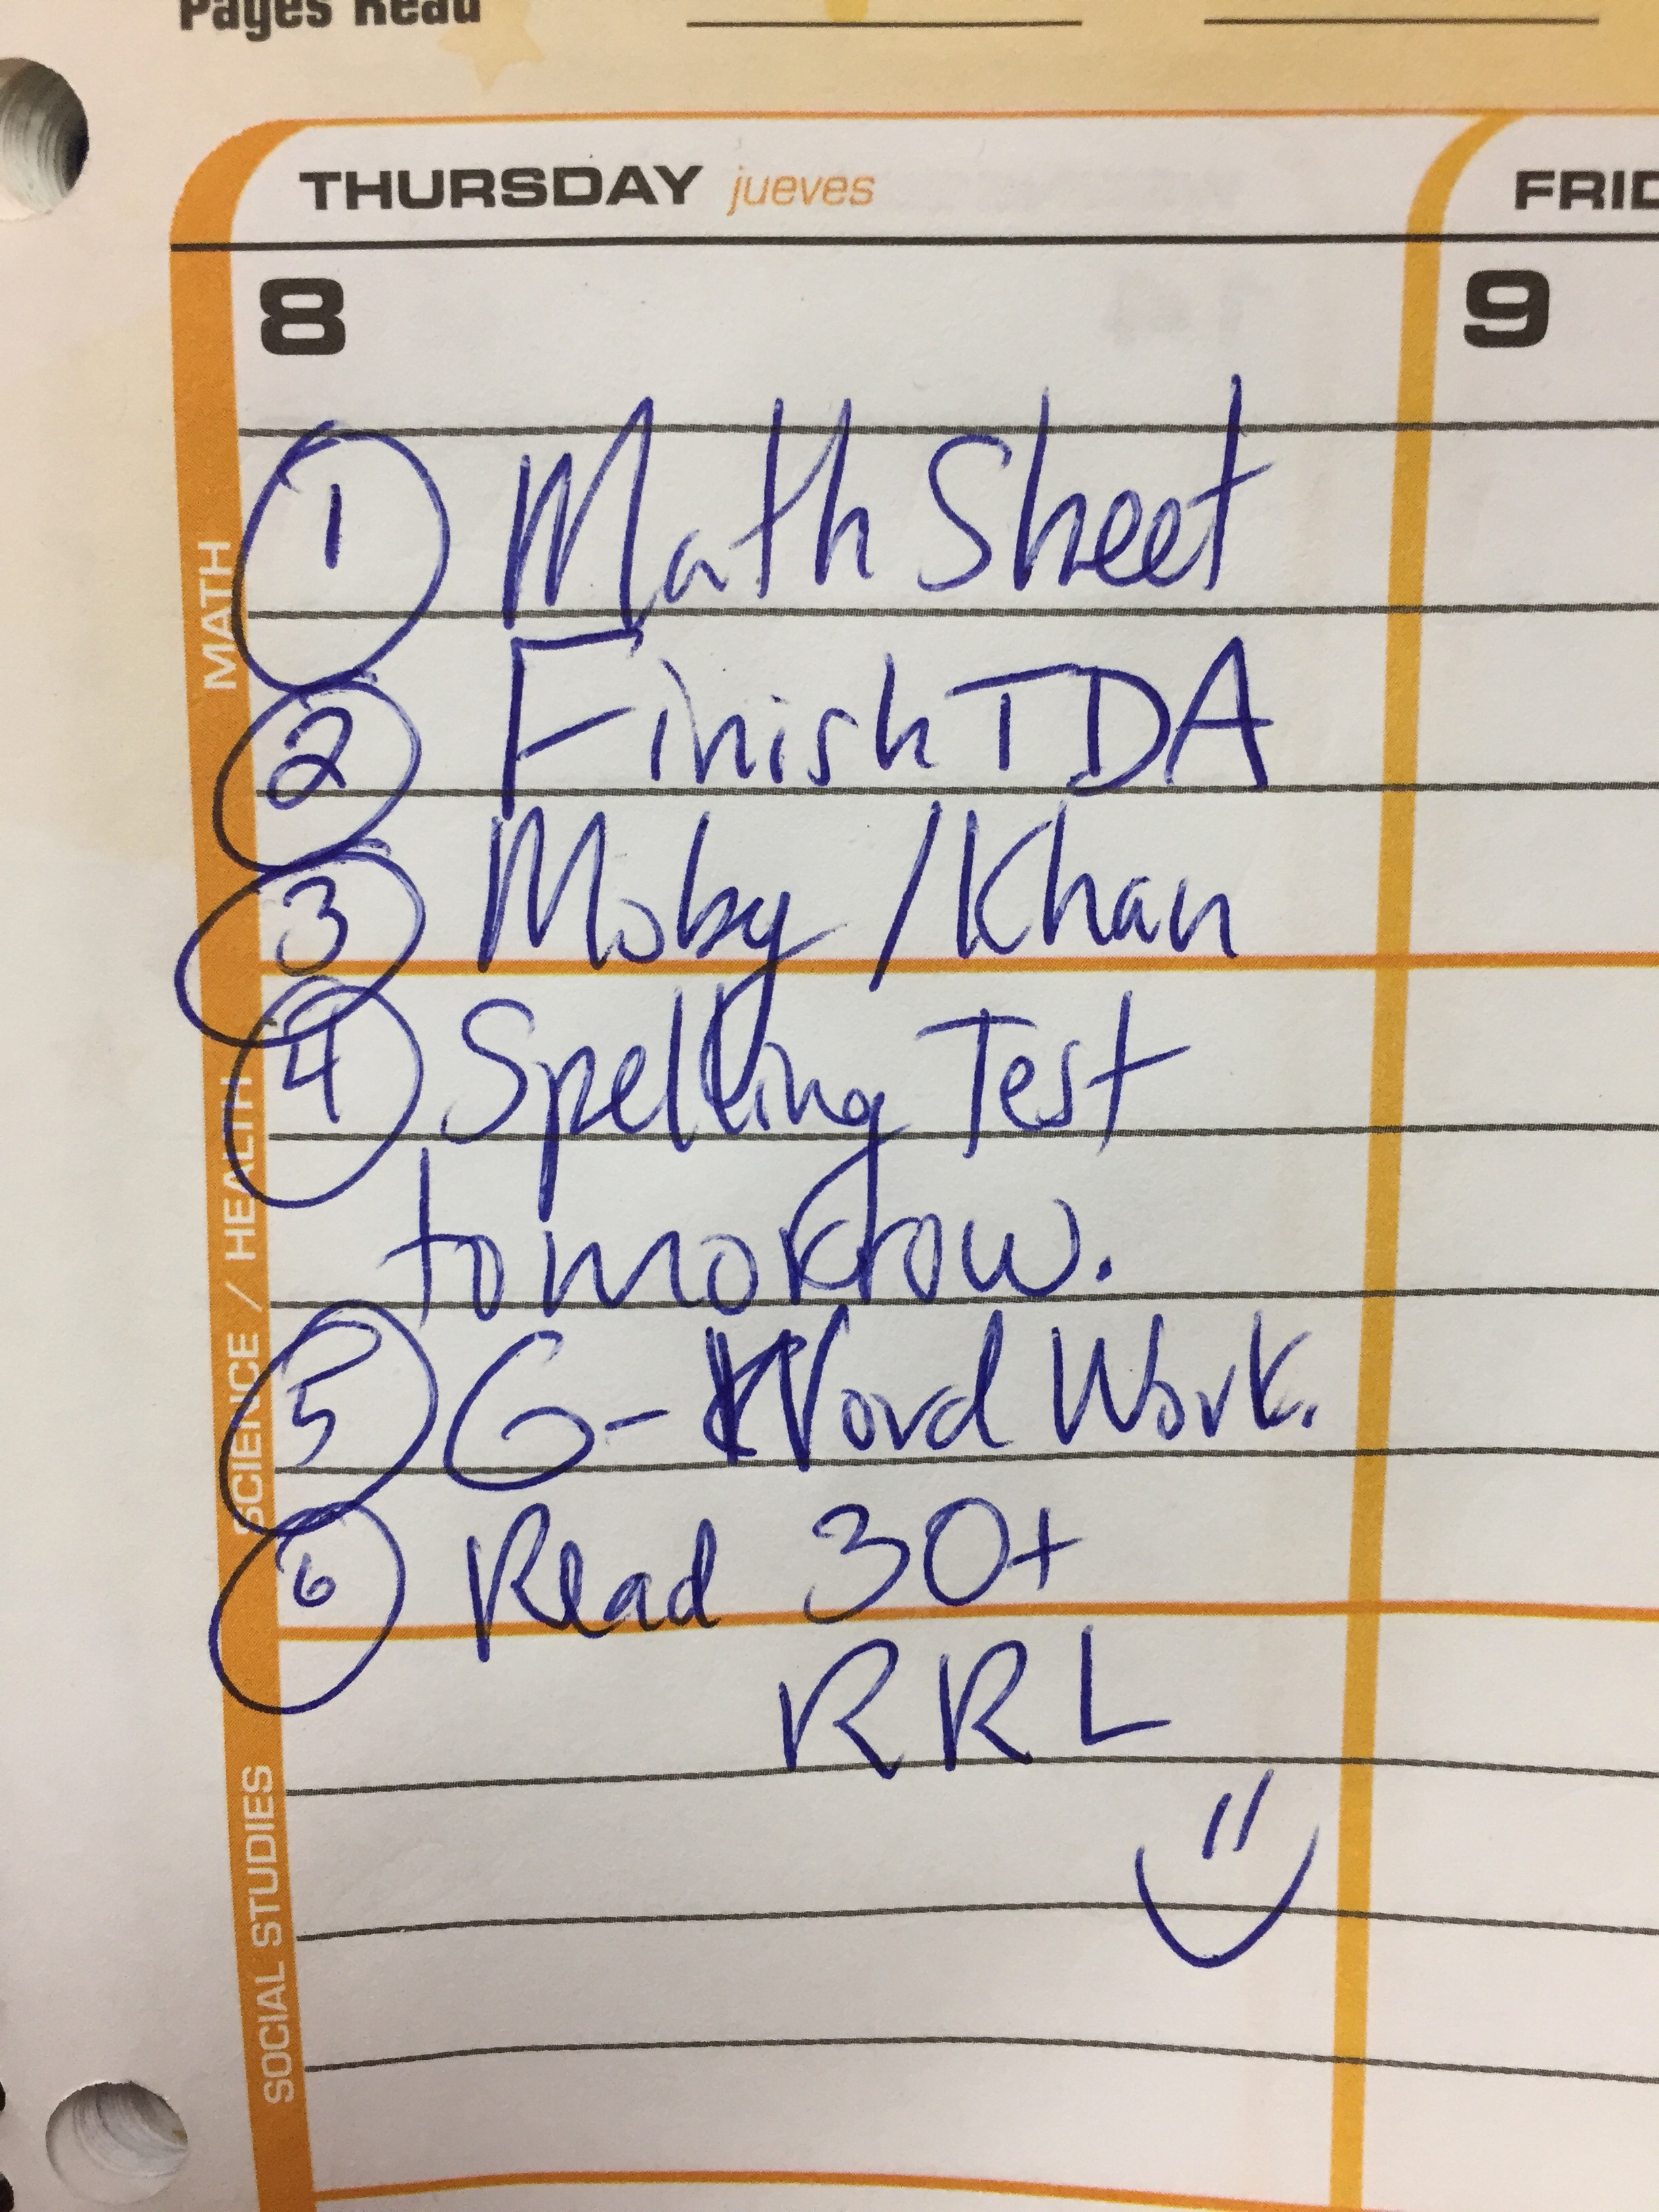 Pages Read
THURSDAY jueves
FRID
8
9
MATH
1 Math Sheet
2 Finish TDA
3 Moby / Khan
SCIENCE / HEALTH
4 Spelling Test
tomorrow.
5 G-Word Work.
6 Read 30+
SOCIAL STUDIES
RRL